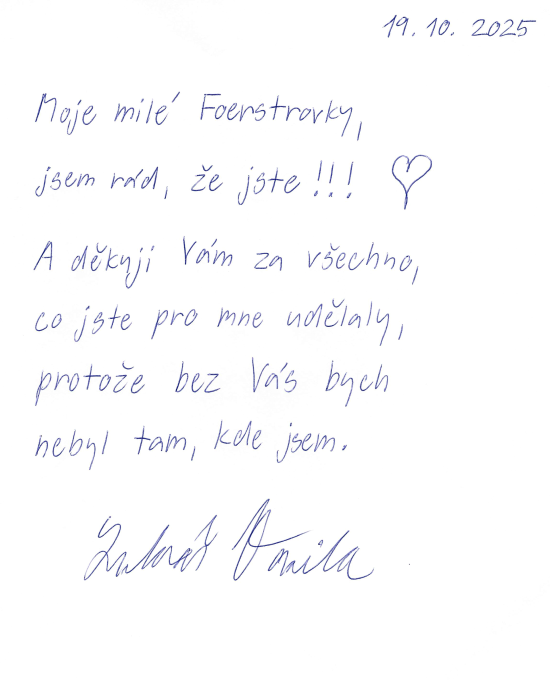 19. 10. 2025
Moje milé Foerstrovky,
jsem rád, že jste !!! ♡
A děkuji Vám za všechno,
co jste pro mne udělaly,
protože bez Vás bych
nebyl tam, kde jsem.
Lukáš